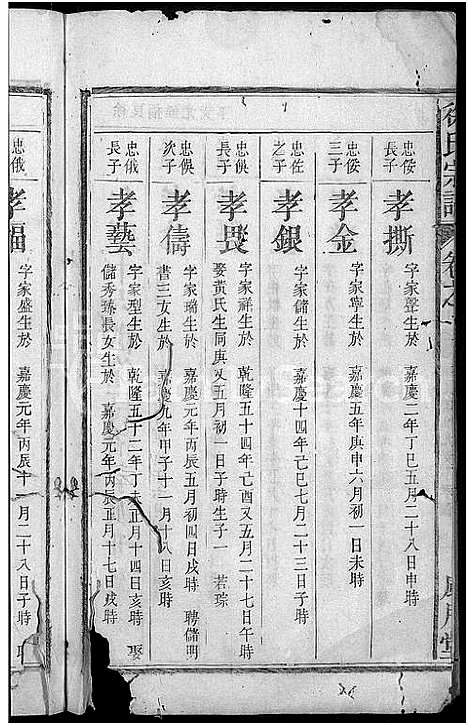 氏宗譜
忠佞長子
孝撕
字家聲生於 嘉慶二年丁巳五月二十八日申時
忠佞三子
孝金
字家寧生於 嘉慶五年庚申六月初一日未時
忠佐之子
孝銀
字家儲生於 嘉慶十四年己巳七月二十三日子時
忠俁長子
孝畏
字家祥生於 乾隆五十四年己酉又五月二十七日午時
娶黃氏生同庚又五月初一日子時生子一 若琮
忠俁次子
孝儔
字家瑞生於 嘉慶元年丙辰五月初四日戌時 聘儲明
書三女生於 嘉慶九年甲子十一月十八日亥時
忠俄長子
孝藝
字家型生於 乾隆五十二年丁未正月十四日亥時 娶
儲秀臻長女生於 嘉慶元年丙辰正月十七日戌時
忠俄
孝福
字家盛生於 嘉慶元年丙辰十一月二十八日子時